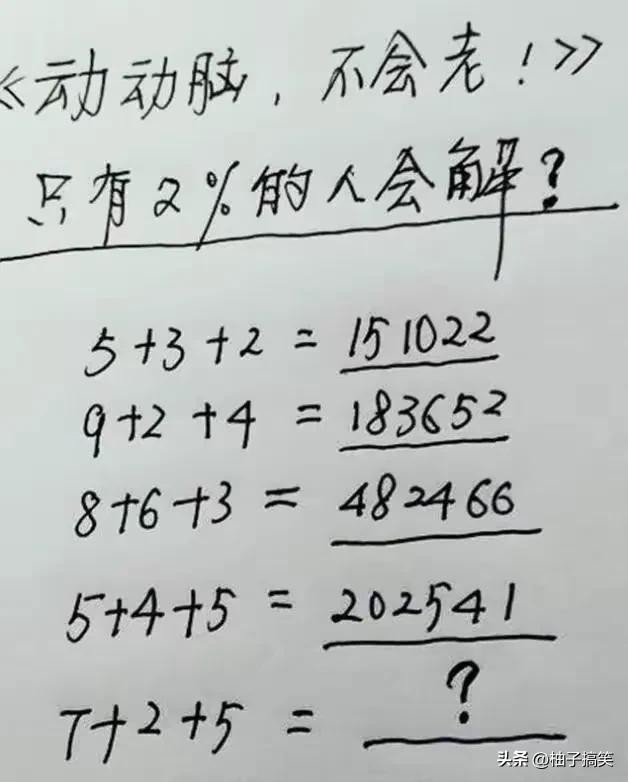 《动动脑，不会老！》
只有2%的人会解？
5+3+2=151022
9+2+4=183652
8+6+3=482466
5+4+5=202541
7+2+5=?
头条 @柚子搞笑